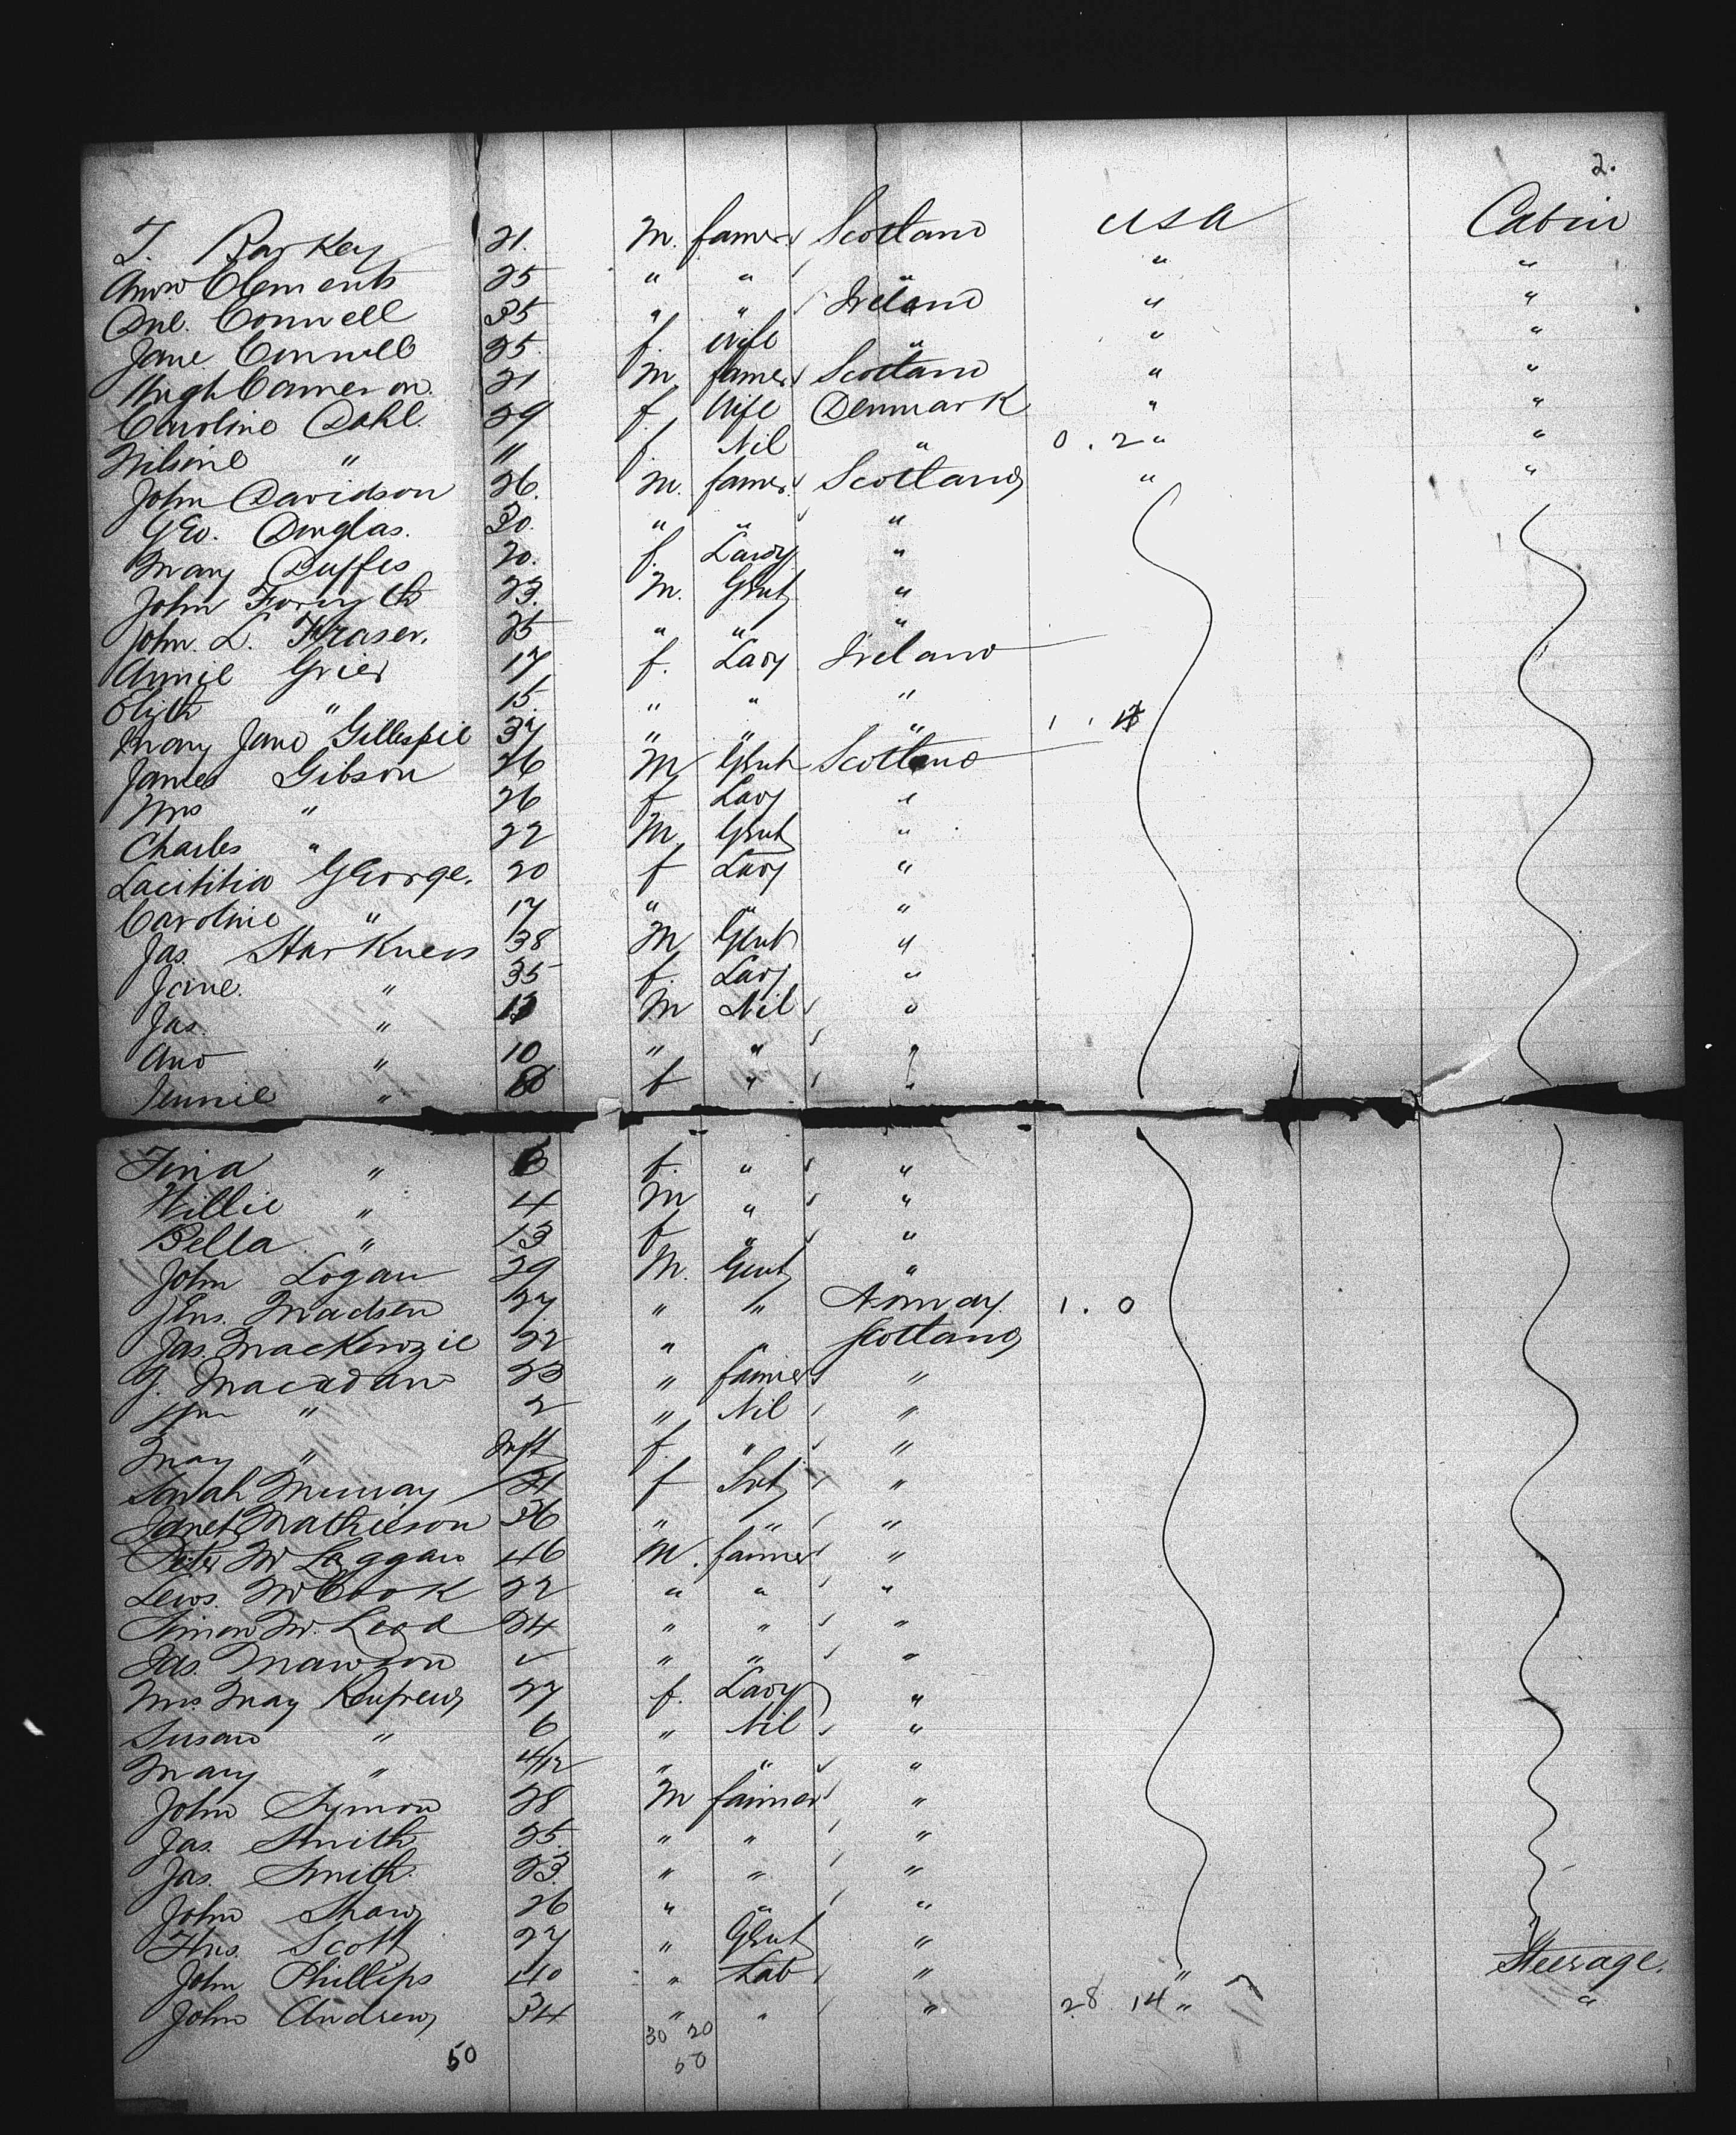 2.
T. Barkey 21. M. famer Scotland USA Cabin
Andw Clements 25 " " " " "
Dnl. Connell 35 " " Ireland " "
Jane Connell 25. f. Wife " " "
Hugh Cameron. 21 M famer Scotland " "
Caroline Dahl. 29 f. Wife Denmark " "
Nilsine " 11 f. Nil " 0 . 2 " "
John Davidson 26. M. famer. Scotland " "
Geo. Douglas. 30. " " "
Mary Duffes 20. f. Lady "
John Forsyth 23. M. Gent "
John. L. Fraser. 25 " " "
Annie Grier 17 f. Lady Ireland
Elizth " 15. " " "
Mary Jane Gillespie 37 " " " 1 .
James Gibson 26 M Gent Scotland
Mrs " 26 f Lady "
Charles " 22 M Gent "
Lacititia George. 20 f Lady "
Caroline " 17 " " "
Jas. Harkness 38 M Gent "
Jane. " 35 f. Lady "
Jas. " M Nil "
And " 10 " " "
Jennie " f " "
Tina " f. " "
Willie " 4 M " "
Bella " 13 f " "
John Logan 29 M. Gent "
Jens. Madsen 27 " " Norway. 1 . 0
Jas. Mackenzie 22 " " Scotland
J. Macadam 23 " famer "
" 2 " Nil "
May " Inft f. " "
Sarah Murray 21 f Svt "
Janet Mathieson 26 " " "
Peter Mc Laggan 46 M. famer "
Lews. McCook 22 " " "
Simon Mc. Leod 24 " " "
Jas. Mawson " " "
Mrs. May Renfrew 27 f. Lady "
Susan " 6 " Nil "
Mary " 4/12 " " "
John Symon 28 M famer "
Jas. Smith 25. " " "
Jas. Smith. 23. " " "
John Shaw 26 " " "
Thos. Scott 27 " Gent "
John Phillips 40 " Lab " " Steerage.
John Andrew 34 " " " 28 14 " "
30 20
50 50